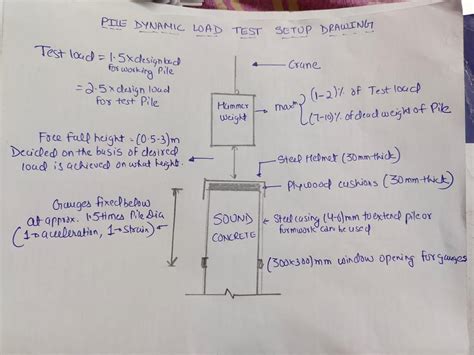 PILE DYNAMIC LOAD TEST SETUP DRAWING
Test load = 1.5 x design load
for working Pile
= 2.5 x design load
for test Pile
Crane
Hammer
Weight
max^m
(1-2)% of Test load
(7-10)% of dead weight of Pile
Free fall height - (0.5-3)m
Decided on the basis of desired
load is achieved on what height.
Steel Helmet (30mm thick)
Plywood cushions (30mm-thick)
Gauges fixed below
at approx. 1.5 times Pile Dia
(1→ acceleration, 1→ strain)
SOUND
CONCRETE
Steel casing (4-6)mm to extend pile or
formwork can be used
(300x300)mm window opening for gauges